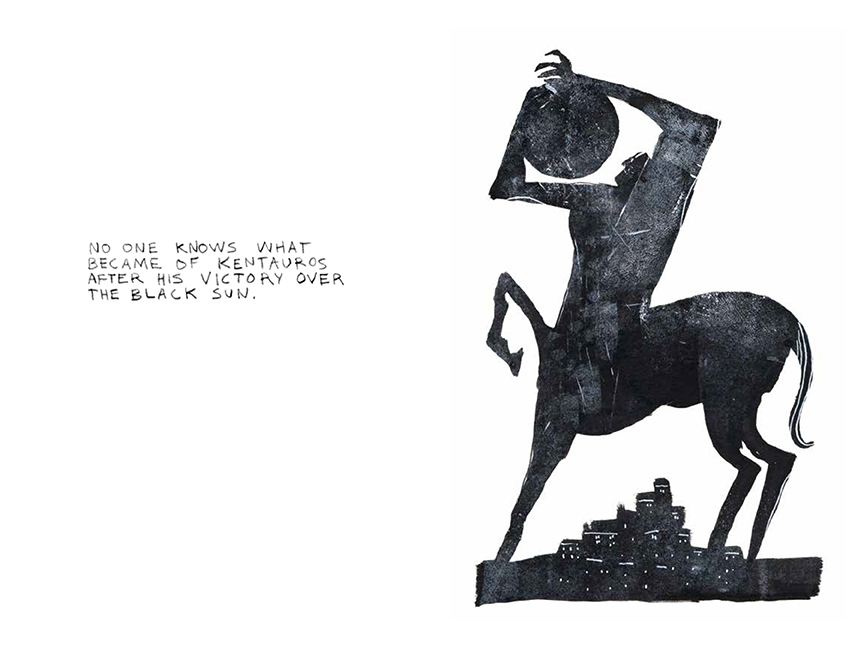 NO ONE KNOWS WHAT
BECAME OF KENTAUROS
AFTER HIS VICTORY OVER
THE BLACK SUN.